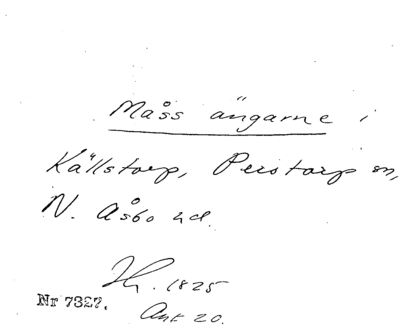 Måss ängarne i
Källstorp, Perstorp sn,
N. Åsbo hd.
Hr. 1825
Nr 7327.
Ank 20.